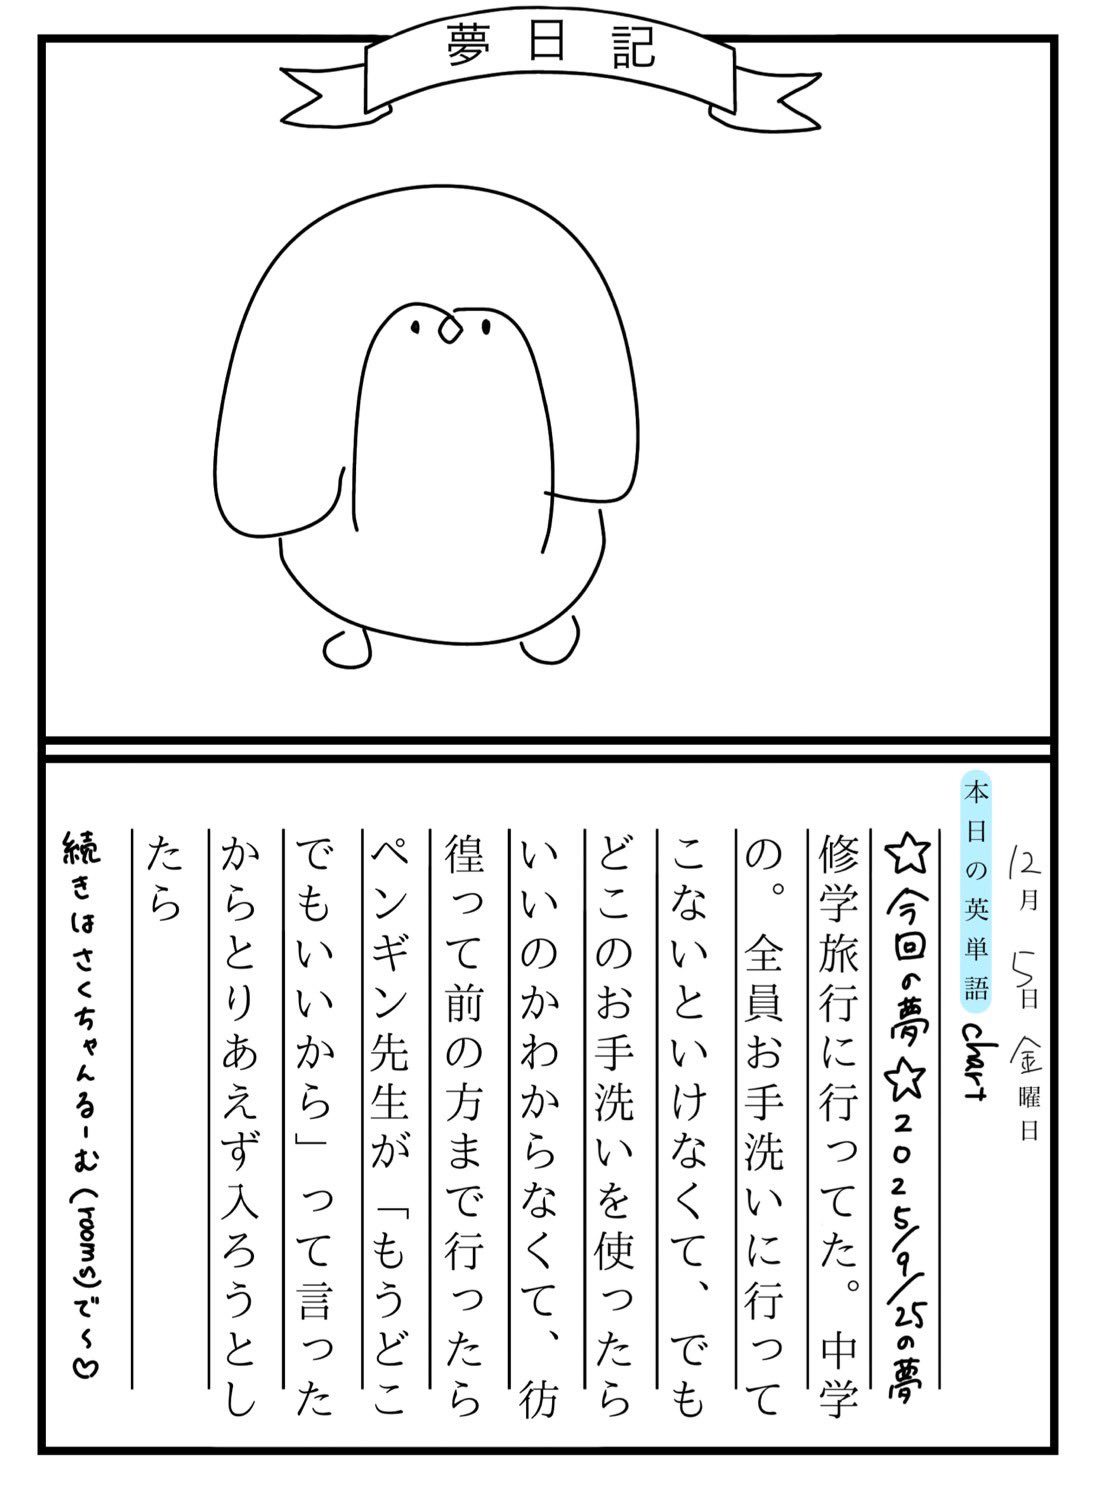 夢日記
12月 5日 金曜日
本日の英単語 chart
☆今回の夢☆2025/9/25の夢
修学旅行に行ってた。中学
の。全員お手洗いに行って
こないといけなくて、でも
どこのお手洗いを使ったら
いいのかわからなくて、彷
徨って前の方まで行ったら
ペンギン先生が「もうどこ
でもいいから」って言った
からとりあえず入ろうとし
たら
続きはさくちゃんるーむ(rooms)で〜♡